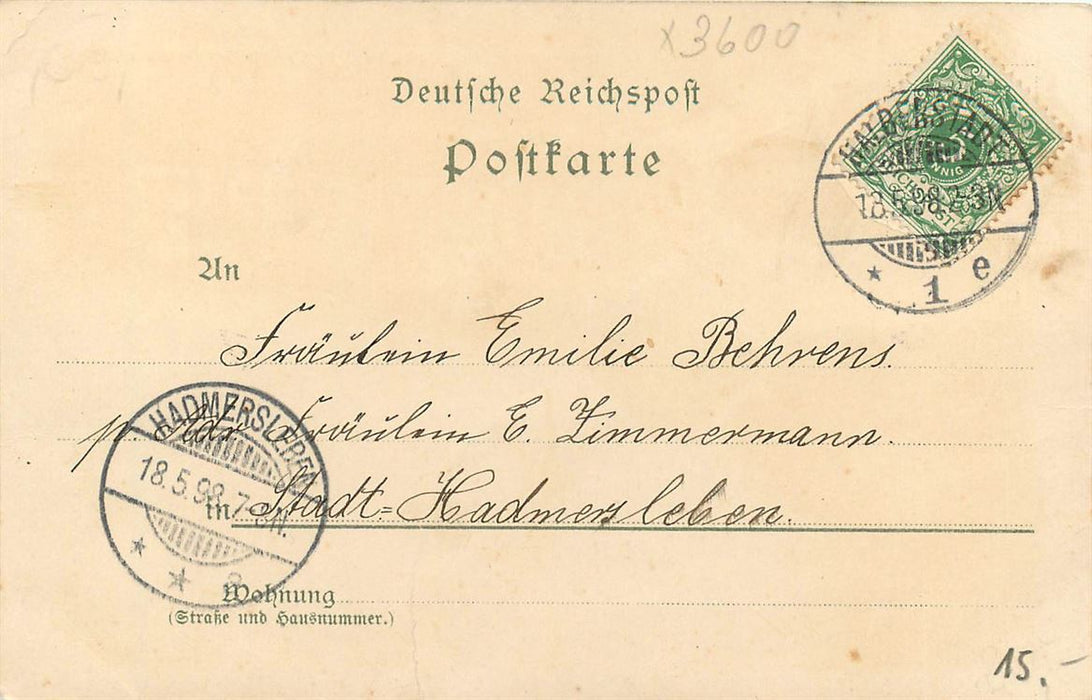 x3600
Deutsche Reichspost
Postkarte
HALBERSTADT
18.5.98.2-3N
* 1 e
REICHSPOST
An
Fräulein Emilie Behrens.
p. Adr. Fräulein E. Zimmermann.
in Stadt=Hadmersleben.
HADMERSLEBEN
18.5.98.7-8N.
* * a
Wohnung
(Straße und Hausnummer.)
15.-